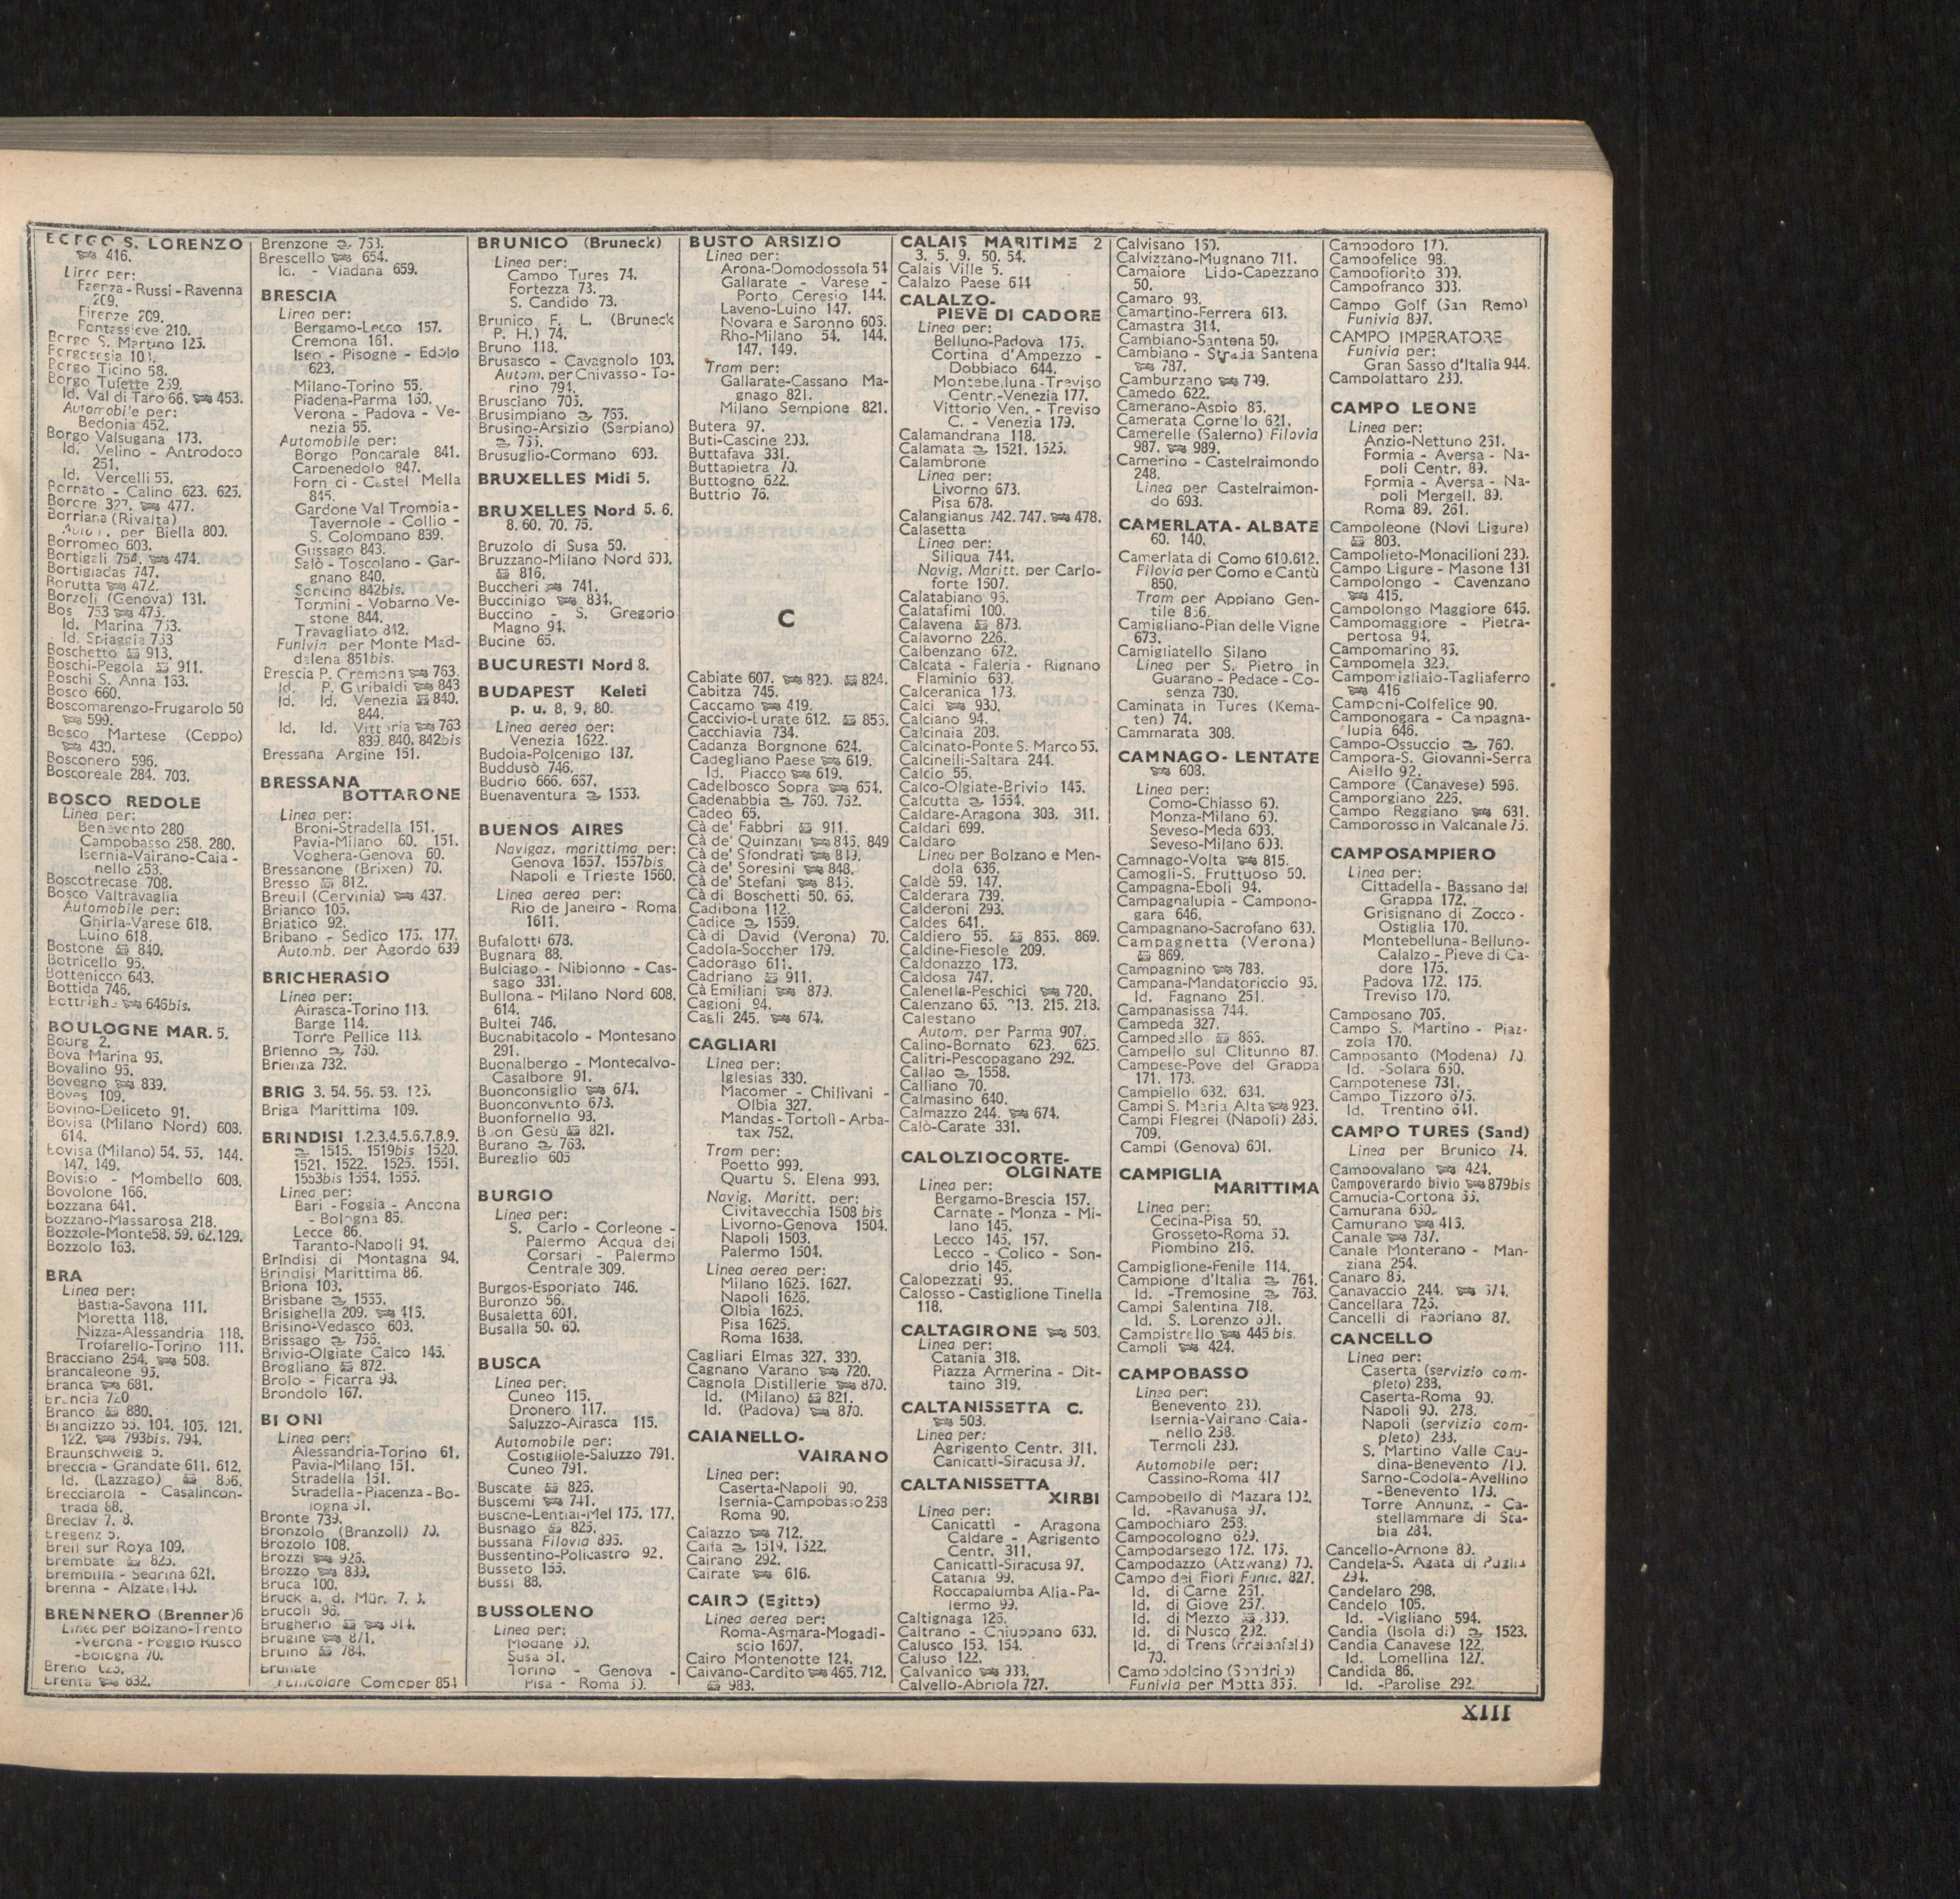 BORGO S. LORENZO
416.
Linee per:
Faenza - Russi - Ravenna
209.
Firenze 209.
Pontassieve 210.
Borgo S. Martino 125.
Borgosesia
Borgo Ticino 58.
Borgo Tufette 259.
Id. Val di Taro 66. 453.
Automobile per:
Bedonia 452.
Borgo Valsugana 173.
Id. Velino - Antrodoco
251.
Id. Vercelli 55.
Bornato - Calino 623. 625.
Borore 327. 477.
Borriana (Rivalta)
per Biella 800.
Borromeo 603.
Bortigali 754. 474.
Bortigiadas 747.
Borutta 472.
Borzoli (Genova) 131.
Bosa 753 475.
Id. Marina 753.
Id. Spiaggia 753
Boschetto 913.
Boschi-Pegola 911.
Boschi S. Anna 163.
Bosco 660.
Boscomarengo-Frugarolo 50
599.
Bosco Martese (Ceppo)
430.
Bosconero 596.
Boscoreale 284. 703.
BOSCO REDOLE
Linea per:
Benevento 280
Campobasso 258. 280.
Isernia-Vairano-Caia-
nello 253.
Boscotrecase 708.
Bosco Valtravaglia
Automobile per:
Ghirla-Varese 618.
Luino 618.
Bostone 840.
Botricello 95.
Bottenicco 643.
Bottida 746.
Bottrighe 646bis.
BOULOGNE MAR. 5.
Bourg 2.
Bova Marina 95.
Bovalino 95.
Bovegno 839.
Boves 109.
Bovino-Deliceto 91.
Bovisa (Milano Nord) 603.
614.
Bovisa (Milano) 54. 55. 144.
147. 149.
Bovisio - Mombello 608.
Bovolone 166.
Bozzana 641.
Bozzano-Massarosa 218.
Bozzole-Monte 58. 59. 62. 129.
Bozzolo 163.
BRA
Linea per:
Bastia-Savona 111.
Moretta 118.
Nizza-Alessandria 118.
Trofarello-Torino 111.
Bracciano 254. 508.
Brancaleone 95.
Branca 681.
Brancia 720
Branco 880.
Brandizzo 55. 104. 105. 121.
122. 793bis. 794.
Braunschweig 5.
Breccia - Grandate 611. 612.
Id. (Lazzago) 856.
Brecciarola - Casalincon-
trada 88.
Breclav 7. 8.
Bregenz 5.
Breil sur Roya 109.
Brembate 825.
Brembilla - Sedrina 621.
Brenna - Alzate 140.
BRENNERO (Brenner) 6
Linea per Bolzano-Trento
-Verona - Poggio Rusco
-Bologna 70.
Breno 623.
Brenta 832.
Brenzone 753.
Brescello 654.
Id. - Viadana 659.
BRESCIA
Linea per:
Bergamo-Lecco 157.
Cremona 161.
Iseo - Pisogne - Edolo
623.
Milano-Torino 55.
Piadena-Parma 160.
Verona - Padova - Ve-
nezia 55.
Automobile per:
Borgo Poncarale 841.
Carpenedolo 847.
Fornaci - Castel Mella
845.
Gardone Val Trompia-
Tavernole - Collio -
S. Colombano 839.
Gussago 843.
Salò - Toscolano - Gar-
gnano 840.
Soncino 842bis.
Tormini - Vobarno Ve-
stone 844.
Travagliato 842.
Funivia per Monte Mad-
dalena 851bis.
Brescia P. Cremona 763.
Id. P. Garibaldi 843
Id. Id. Venezia 840.
844.
Id. Id. Vittoria 763
839. 840. 842bis
Bressana Argine 151.
BRESSANA
BOTTARONE
Linea per:
Broni-Stradella 151.
Pavia-Milano 60. 151.
Voghera-Genova 60.
Bressanone (Brixen) 70.
Bresso 812.
Breuil (Cervinia) 437.
Brianco 105.
Briatico 92.
Bribano - Sedico 175. 177.
Automb. per Agordo 639
BRICHERASIO
Linea per:
Airasca-Torino 113.
Barge 114.
Torre Pellice 113.
Brienno 750.
Brienza 732.
BRIG 3. 54. 56. 58. 125.
Briga Marittima 109.
BRINDISI 1.2.3.4.5.6.7.8.9.
1515. 1519bis 1520.
1521. 1522. 1525. 1551.
1553bis 1554. 1555.
Linea per:
Bari - Foggia - Ancona
- Bologna 86.
Lecce 86.
Taranto-Napoli 94.
Brindisi di Montagna 94.
Brindisi Marittima 86.
Briona 103.
Brisbane 1555.
Brisighella 209. 415.
Brisino-Vedasco 603.
Brissago 756.
Brivio-Olgiate Calco 145.
Brogliano 872.
Brolo - Ficarra 93.
Brondolo 167.
BRONI
Linea per:
Alessandria-Torino 61.
Pavia-Milano 151.
Stradella 151.
Stradella-Piacenza-Bo-
logna 61.
Bronte 739.
Bronzolo (Branzoll) 70.
Brozolo 108.
Brozzi 926.
Brozzo 839.
Bruca 100.
Bruck a. d. Mür. 7. 8.
Brucoli 96.
Brugherio 814.
Brugine 871.
Bruino 784.
Brunate
Funicolare Como per 854
BRUNICO (Bruneck)
Linea per:
Campo Tures 74.
Fortezza 73.
S. Candido 73.
Brunico F. L. (Bruneck
P. H.) 74.
Bruno 118.
Brusasco - Cavagnolo 103.
Autom. per Chivasso - To-
rino 794.
Brusciano 705.
Brusimpiano 755.
Brusino-Arsizio (Serpiano)
755.
Brusuglio-Cormano 603.
BRUXELLES Midi 5.
BRUXELLES Nord 5. 6.
8. 60. 70. 75.
Bruzolo di Susa 50.
Bruzzano-Milano Nord 603.
816.
Buccheri 741.
Buccinigo 834.
Buccino - S. Gregorio
Magno 94.
Bucine 65.
BUCURESTI Nord 8.
BUDAPEST Keleti
p. u. 8, 9, 80.
Linea aerea per:
Venezia 1622.
Budoia-Polcenigo 187.
Buddusò 746.
Budrio 666. 667.
Buenaventura 1553.
BUENOS AIRES
Navigaz. marittima per:
Genova 1557. 1557bis.
Napoli e Trieste 1560.
Linea aerea per:
Rio de Janeiro - Roma
1611.
Bufalotti 673.
Bugnara 88.
Bulciago - Nibionno - Cas-
sago 331.
Bullona - Milano Nord 608.
614.
Bultei 746.
Buonabitacolo - Montesano
291.
Buonalbergo - Montecalvo-
Casalbore 91.
Buonconsiglio 674.
Buonconvento 673.
Buonfornello 93.
Buon Gesù 821.
Burano 763.
Bureglio 605
BURGIO
Linea per:
S. Carlo - Corleone -
Palermo Acqua dei
Corsari - Palermo
Centrale 309.
Burgos-Esporlato 746.
Buronzo 56.
Busaletta 601.
Busalla 50. 60.
BUSCA
Linea per:
Cuneo 115.
Dronero 117.
Saluzzo-Airasca 115.
Automobile per:
Costigliole-Saluzzo 791.
Cuneo 791.
Buscate 826.
Buscemi 741.
Busche-Lentiai-Mel 175. 177.
Busnago 825.
Bussana Filovia 895.
Bussentino-Policastro 92.
Busseto 155.
Bussi 88.
BUSSOLENO
Linea per:
Modane 50.
Susa 51.
Torino - Genova -
Pisa - Roma 50.
BUSTO ARSIZIO
Linea per:
Arona-Domodossola 54
Gallarate - Varese -
Porto Ceresio 144.
Laveno-Luino 147.
Novara e Saronno 605.
Rho-Milano 54. 144.
147. 149.
Tram per:
Gallarate-Cassano Ma-
gnago 821.
Milano Sempione 821.
Butera 97.
Buti-Cascine 203.
Buttafava 331.
Buttapietra 70.
Buttogno 622.
Buttrio 76.
C
Cabiate 607. 820. 824.
Cabitza 745.
Caccamo 419.
Caccivio-Lurate 612. 856.
Cacchiavia 734.
Cadanza Borgnone 624.
Cadegliano Paese 619.
Id. Piacco 619.
Cadelbosco Sopra 654.
Cadenabbia 760. 762.
Cadeo 65.
Cà de' Fabbri 911.
Cà de' Quinzani 845. 849
Cà de' Sfondrati 849.
Cà de' Soresini 848.
Cà de' Stefani 845.
Cà di Boschetti 50. 65.
Cadibona 112.
Cadice 1559.
Cà di David (Verona) 70.
Cadola-Soccher 179.
Cadorago 611.
Cadriano 911.
Cà Emiliani 879.
Cagioni 94.
Cagli 245. 674.
CAGLIARI
Linea per:
Iglesias 330.
Macomer - Chilivani -
Olbia 327.
Mandas-Tortolì-Arba-
tax 752.
Tram per:
Poetto 999.
Quartu S. Elena 993.
Navig. Maritt. per:
Civitavecchia 1508 bis
Livorno-Genova 1504.
Napoli 1503.
Palermo 1504.
Linea aerea per:
Milano 1625. 1627.
Napoli 1626.
Olbia 1625.
Pisa 1625.
Roma 1638.
Cagliari Elmas 327. 330.
Cagnano Varano 720.
Cagnola Distillerie 870.
Id. (Milano) 821.
Id. (Padova) 870.
CAIANELLO-
VAIRANO
Linea per:
Caserta-Napoli 90.
Isernia-Campobasso 258
Roma 90.
Caiazzo 712.
Caifa 1519. 1522.
Cairano 292.
Cairate 616.
CAIRO (Egitto)
Linea aerea per:
Roma-Asmara-Mogadi-
scio 1607.
Cairo Montenotte 124.
Caivano-Cardito 465. 712.
983.
CALAIS MARITIME 2
3. 5. 9. 50. 54.
Calais Ville 5.
Calalzo Paese 644
CALALZO-
PIEVE DI CADORE
Linea per:
Belluno-Padova 175.
Cortina d'Ampezzo -
Dobbiaco 644.
Montebelluna-Treviso
Centr.-Venezia 177.
Vittorio Ven. - Treviso
C. - Venezia 179.
Calamandrana 118.
Calamata 1521. 1525.
Calambrone
Linea per:
Livorno 673.
Pisa 678.
Calangianus 742. 747. 478.
Calasetta
Linea per:
Siliqua 744.
Navig. Maritt. per Carlo-
forte 1507.
Calatabiano 95.
Calatafimi 100.
Calavena 873.
Calavorno 226.
Calbenzano 672.
Calcata - Faleria - Rignano
Flaminio 680.
Calceranica 173.
Calci 930.
Calciano 94.
Calcinaia 203.
Calcinato-Ponte S. Marco 55.
Calcinelli-Saltara 244.
Calcio 55.
Calco-Olgiate-Brivio 145.
Calcutta 1554.
Caldare-Aragona 303. 311.
Caldari 699.
Caldaro
Linea per Bolzano e Men-
dola 636.
Caldè 59. 147.
Calderara 739.
Calderoni 293.
Caldes 641.
Caldiero 55. 865. 869.
Caldine-Fiesole 209.
Caldonazzo 173.
Caldosa 747.
Calenella-Peschici 720.
Calenzano 65. 213. 215. 218.
Calestano
Autom. per Parma 907.
Calino-Bornato 623. 625.
Calitri-Pescopagano 292.
Callao 1558.
Calliano 70.
Calmasino 640.
Calmazzo 244. 674.
Calò-Carate 331.
CALOLZIOCORTE-
OLGINATE
Linea per:
Bergamo-Brescia 157.
Carnate - Monza - Mi-
lano 145.
Lecco 145. 157.
Lecco - Colico - Son-
drio 145.
Calopezzati 95.
Calosso - Castiglione Tinella
118.
CALTAGIRONE 503.
Linea per:
Catania 318.
Piazza Armerina - Dit-
taino 319.
CALTANISSETTA C.
503.
Linea per:
Agrigento Centr. 311.
Canicattì-Siracusa 97.
CALTANISSETTA
XIRBI
Linea per:
Canicattì - Aragona
Caldare - Agrigento
Centr. 311.
Canicattì-Siracusa 97.
Catania 99.
Roccapalumba Alia-Pa-
lermo 99.
Caltignaga 126.
Caltrano - Chiuppano 630.
Calusco 153. 154.
Caluso 122.
Calvanico 933.
Calvello-Abriola 727.
Calvisano 160.
Calvizzano-Mugnano 711.
Camaiore Lido-Capezzano
50.
Camaro 93.
Camartino-Ferrera 613.
Camastra 314.
Cambiano-Santena 50.
Cambiano - Strada Santena
787.
Camburzano 799.
Camedo 622.
Camerano-Aspio 86.
Camerata Cornello 621.
Camerelle (Salerno) Filovia
987. 989.
Camerino - Castelraimondo
248.
Linea per Castelraimon-
do 693.
CAMERLATA-ALBATE
60. 140.
Camerlata di Como 610.612.
Filovia per Como e Cantù
850.
Tram per Appiano Gen-
tile 856.
Camigliano-Pian delle Vigne
673.
Camigliatello Silano
Linea per S. Pietro in
Guarano - Pedace - Co-
senza 730.
Caminata in Tures (Kema-
ten) 74.
Cammarata 308.
CAMNAGO-LENTATE
608.
Linea per:
Como-Chiasso 60.
Monza-Milano 60.
Seveso-Meda 603.
Seveso-Milano 603.
Camnago-Volta 815.
Camogli-S. Fruttuoso 50.
Campagna-Eboli 94.
Campagnalupia - Campono-
gara 646.
Campagnano-Sacrofano 630.
Campagnetta (Verona)
869.
Campagnino 783.
Campana-Mandatoriccio 95.
Id. Fagnano 251.
Campanasissa 744.
Campeda 327.
Campedello 866.
Campello sul Clitunno 87.
Campese-Pove del Grappa
171. 173.
Campiello 632. 634.
Campi S. Maria Alta 923.
Campi Flegrei (Napoli) 285.
709.
Campi (Genova) 601.
CAMPIGLIA
MARITTIMA
Linea per:
Cecina-Pisa 50.
Grosseto-Roma 50.
Piombino 216.
Campiglione-Fenile 114.
Campione d'Italia 764.
Id. -Tremosine 763.
Campi Salentina 718.
Id. S. Lorenzo 601.
Campistrello 445 bis.
Campli 424.
CAMPOBASSO
Linea per:
Benevento 280.
Isernia-Vairano Caia-
nello 258.
Termoli 280.
Automobile per:
Cassino-Roma 417
Campobello di Mazara 102.
Id. -Ravanusa 97.
Campochiaro 258.
Campocologno 629.
Campodarsego 172. 175.
Campodazzo (Atzwang) 70.
Campo dei Fiori Funic. 827.
Id. di Carne 261.
Id. di Giove 257.
Id. di Mezzo 839.
Id. di Nusco 292.
Id. di Trens (Freienfeld)
70.
Campodolcino (Sondrio)
Funivia per Motta 855.
Campodoro 170.
Campofelice 98.
Campofiorito 309.
Campofranco 303.
Campo Golf (San Remo)
Funivia 897.
CAMPO IMPERATORE
Funivia per:
Gran Sasso d'Italia 944.
Campolattaro 280.
CAMPO LEONE
Linea per:
Anzio-Nettuno 261.
Formia - Aversa - Na-
poli Centr. 89.
Formia - Aversa - Na-
poli Mergell. 89.
Roma 89. 261.
Campoleone (Novi Ligure)
803.
Campolieto-Monacilioni 280.
Campo Ligure - Masone 131
Campolongo - Cavenzano
415.
Campolongo Maggiore 646.
Campomaggiore - Pietra-
pertosa 94.
Campomarino 86.
Campomela 329.
Campomigliaio-Tagliaferro
416
Camponi-Colfelice 90.
Camponogara - Campagna-
lupia 646.
Campo-Ossuccio 760.
Campora-S. Giovanni-Serra
Aiello 92.
Campore (Canavese) 596.
Camporgiano 226.
Campo Reggiano 681.
Camporosso in Valcanale 75.
CAMPOSAMPIERO
Linea per:
Cittadella - Bassano del
Grappa 172.
Grisignano di Zocco -
Ostiglia 170.
Montebelluna-Belluno-
Calalzo - Pieve di Ca-
dore 175.
Padova 172. 175.
Treviso 170.
Camposano 705.
Campo S. Martino - Piaz-
zola 170.
Camposanto (Modena) 70.
Id. -Solara 650.
Campotenese 731.
Campo Tizzoro 675.
Id. Trentino 641.
CAMPO TURES (Sand)
Linea per Brunico 74.
Campovalano 424.
Campoverardo bivio 879bis
Camucia-Cortona 65.
Camurana 650.
Camurano 416.
Canale 787.
Canale Monterano - Man-
ziana 254.
Canaro 85.
Canavaccio 244. 674.
Cancellara 726.
Cancelli di Fabriano 87.
CANCELLO
Linea per:
Caserta (servizio com-
pleto) 288.
Caserta-Roma 90.
Napoli 90. 278.
Napoli (servizio com-
pleto) 288.
S. Martino Valle Cau-
dina-Benevento 710.
Sarno-Codola-Avellino
-Benevento 178.
Torre Annunz. - Ca-
stellammare di Sta-
bia 284.
Cancello-Arnone 89.
Candela-S. Agata di Puglia
294.
Candelaro 298.
Candelo 105.
Id. -Vigliano 594.
Candia (Isola di) 1523.
Candia Canavese 122.
Id. Lomellina 127.
Candida 86.
Id. -Parolise 292.
XIII